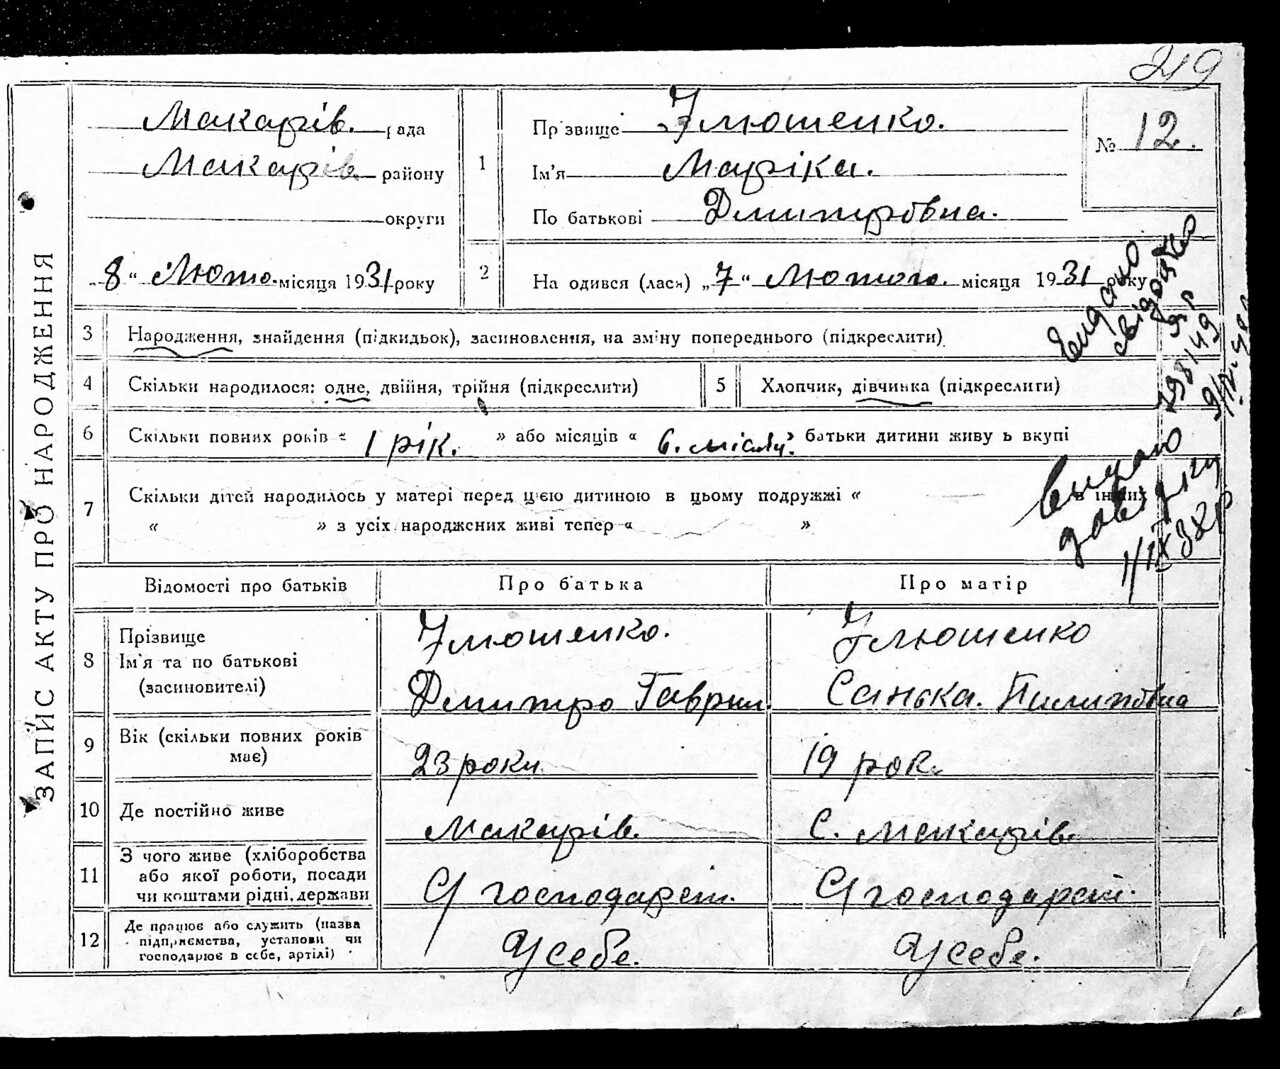 219
ЗАПИС АКТУ ПРО НАРОДЖЕННЯ
Макарів. рада
Макарів району
округи
„8“ Люто. місяця 1931 року
1
Прізвище Ілюшенко.
Ім'я Маріка.
По батькові Дмитрівна.
№ 12.
2 На одився (лася) „7“ Лютого. місяця 1931 року
3 Народження, знайдення (підкидьок), засиновлення, на зміну попереднього (підкреслити)
4 Скільки народилося: одне, двійня, трійня (підкреслити)
5 Хлопчик, дівчинка (підкреслити)
6 Скільки повних років « 1 рік. » або місяців « 6. місяц. » батьки дитини живу ь вкупі
7 Скільки дітей народилось у матері перед цією дитиною в цьому подружжі « в інших
« » з усіх народжених живі тепер « »
Видано
свідоцтво
798149
видано
довідку
1/IX 3Хр
Відомості про батьків
Про батька
Про матір
8 Прізвище
Ім'я та по батькові
(засиновителі)
Ілюшенко.
Дмитро Гаврил.
Ілюшенко
Санька. Пилипівна
9 Вік (скільки повних років
має)
23 роки
19 рок.
10 Де постійно живе
Макарів.
с. Макарів.
11 З чого живе (хліборобства
або якої роботи, посади
чи коштами рідні, держави
С/господарст.
С/господарст.
12 Де працює або служить (назва
підприємства, установи чи
господарює в себе, артілі)
У себе.
У себе.